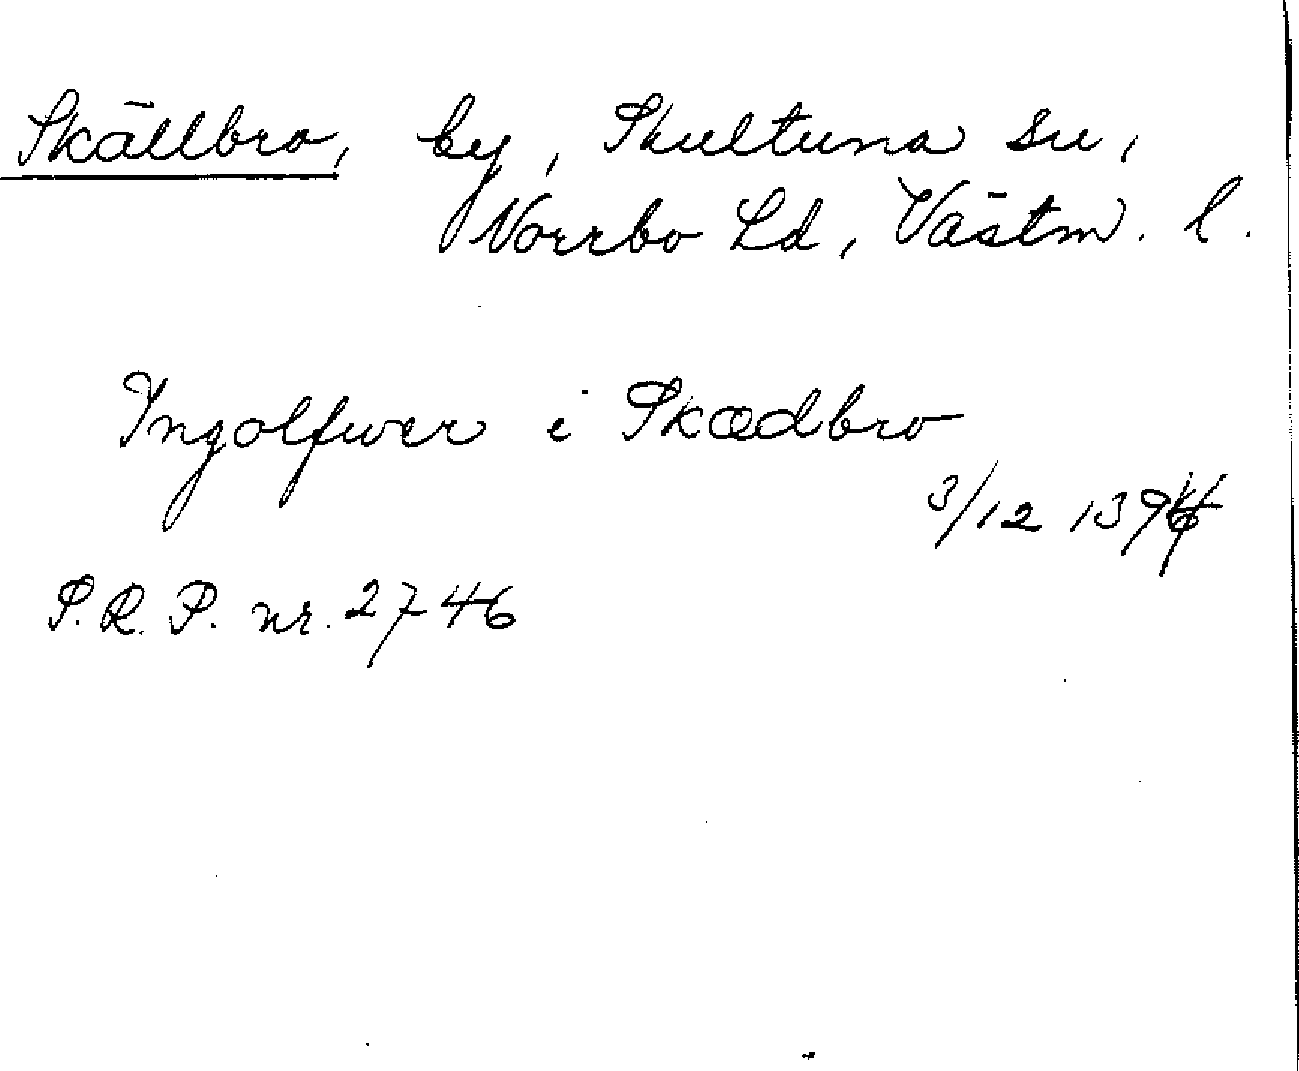 Skällbro, by, Skultuna sn,
Norrbo hd, Västm. l.
Ingolfwer i Skædbro
3/12 1394
S.R.P. nr. 2746